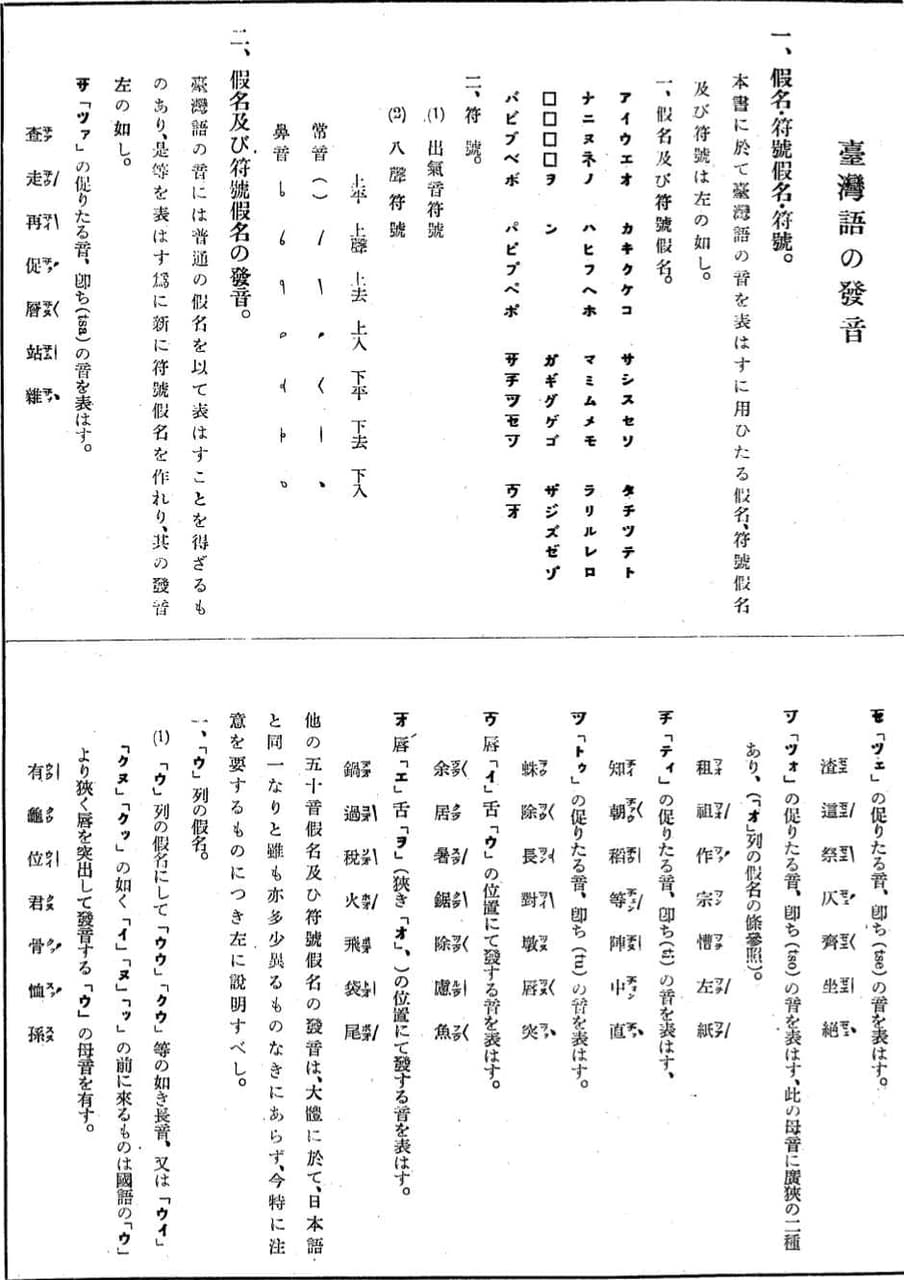 臺灣語の發音
一、假名・符號假名・符號。
本書に於て臺灣語の音を表はすに用ひたる假名、符號假名
及び符號は左の如し。
一、假名及び符號假名。
アイウエオ カキクケコ サシスセソ タチツテト
ナニヌネノ ハヒフヘホ マミムメモ ラリルレロ
□□□□ヲ ン ガギグゲゴ ザジズゼゾ
バビブベボ パピプペポ サ̅チ̅ツ̅セ̅ソ̅ ウ̅オ̅
二、符號。
(1) 出氣音符號
(2) 八聲符號
上平 上聲 上去 上入 下平 下去 下入
常音 ( )
鼻音
二、假名及び符號假名の發音。
臺灣語の音には普通の假名を以て表はすことを得ざるも
のあり、是等を表はす爲に新に符號假名を作れり、其の發音
左の如し。
サ̅「ツァ」の促りたる音、卽ち(tsa)の音を表はす。
查 走 再 促 層 站 雜
セ̅「ツェ」の促りたる音、卽ち(tse)の音を表はす。
渣 這 祭 仄 齊 坐 絕
ソ̅「ツォ」の促りたる音、卽ち(tso)の音を表はす、此の母音に廣狹の二種
あり、(「オ」列の假名の條參照)。
租 祖 作 宗 慒 左 紙
チ̅「ティ」の促りたる音、卽ち(ti)の音を表はす、
知 朝 稻 等 陣 中 直
ツ̅「トゥ」の促りたる音、卽ち(tu)の音を表はす。
蛛 除 長 對 墩 唇 突
ウ̅ 唇「イ」舌「ウ」の位置にて發する音を表はす。
余 居 暑 鋸 除 慮 魚
オ̅ 唇「エ」舌「ヲ」(狹き「オ」、)の位置にて發する音を表はす。
鍋 過 稅 火 飛 袋 尾
他の五十音假名及ひ符號假名の發音は、大體に於て、日本語
と同一なりと雖も亦多少異るものなきにあらず、今特に注
意を要するものにつき左に說明すべし。
一、「ウ」列の假名。
(1) 「ウ」列の假名にして「ウウ」「クウ」等の如き長音、又は「ウイ」
「クヌ」「クッ」の如く「イ」「ヌ」「ッ」の前に來るものは國語の「ウ」
より狹く唇を突出して發音する「ウ」の母音を有す。
有 龜 位 君 骨 恤 孫